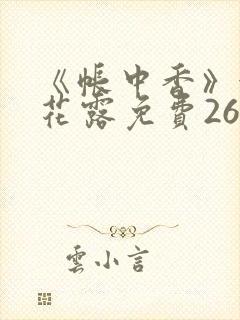 《帳中香》
花露免費26
雲小言